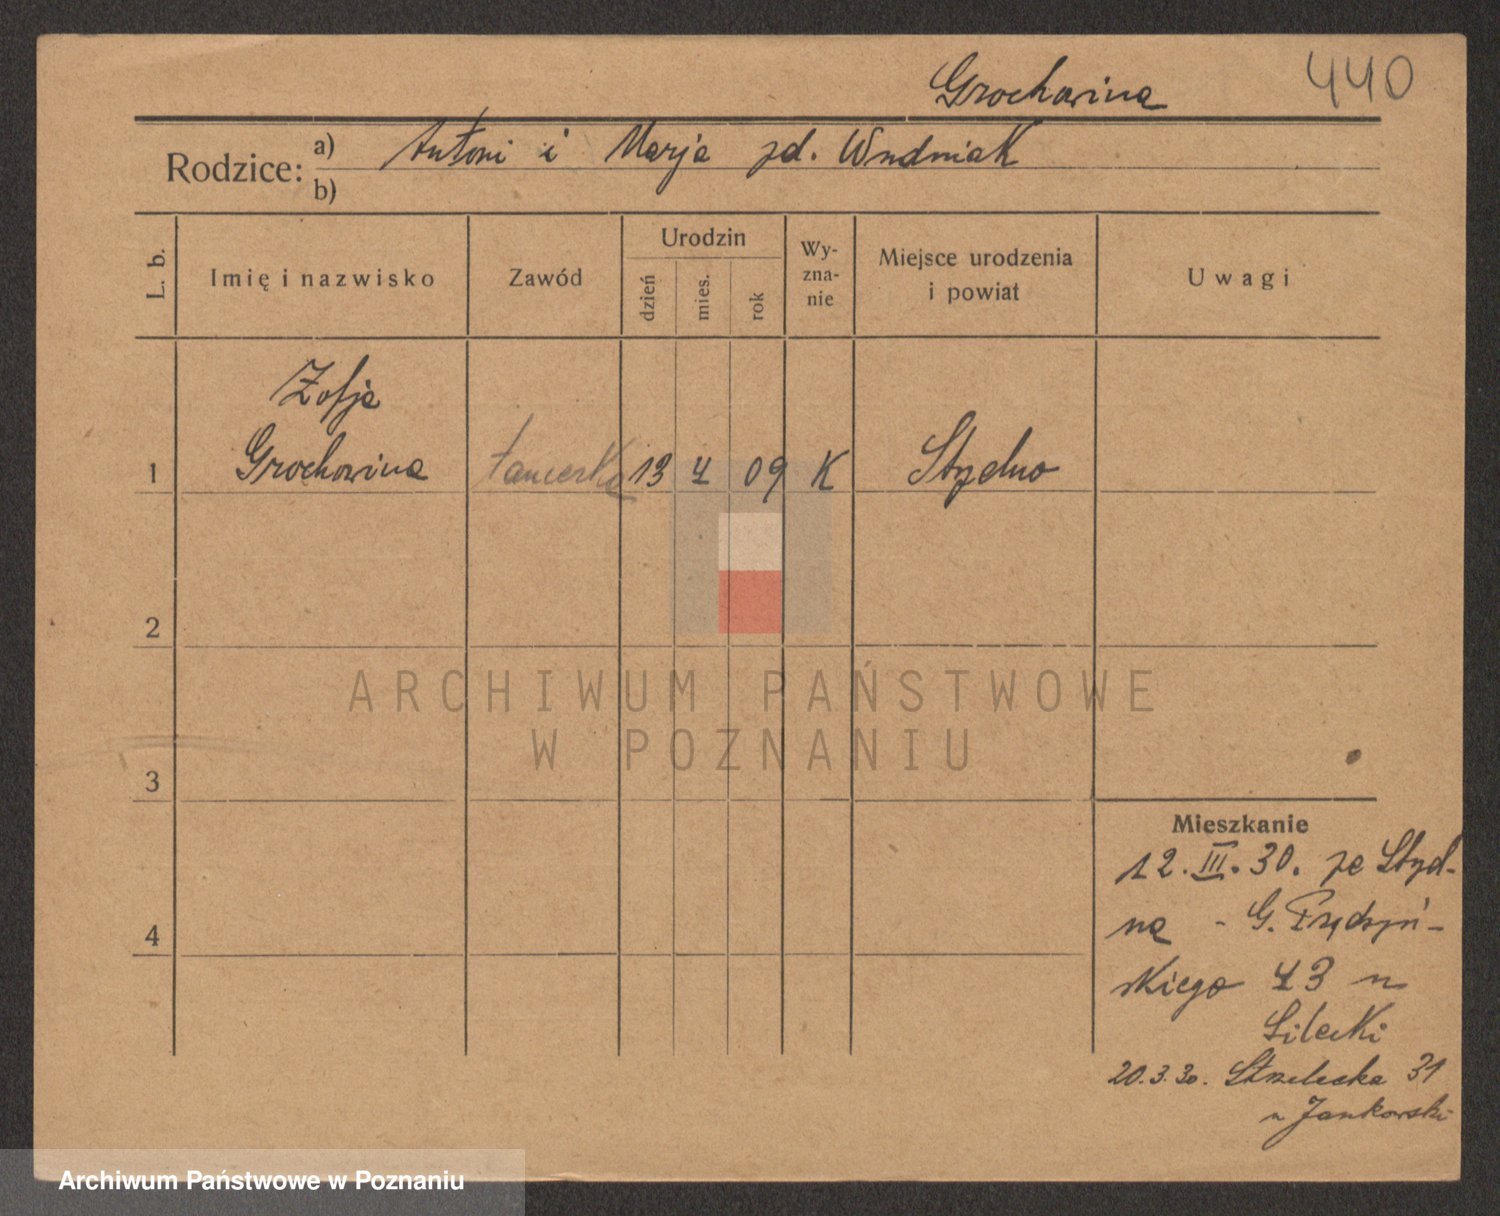 Grochowina 440
Rodzice: a) Antoni i Marja zd. Woźniak
b)
L. b. Imię i nazwisko Zawód Urodzin dzień mies. rok Wy-zna-nie Miejsce urodzenia i powiat Uwagi
Zofja
1 Grochowina tancerka 13 4 09 K Stydno
2
ARCHIWUM PAŃSTWOWE
W POZNANIU
3
Mieszkanie
12.III.30. ze Styd-
na - G. Prądzyń-
4
skiego 43 u
20.3.30. Strzelecka 31
u Jankowski
Archiwum Państwowe w Poznaniu